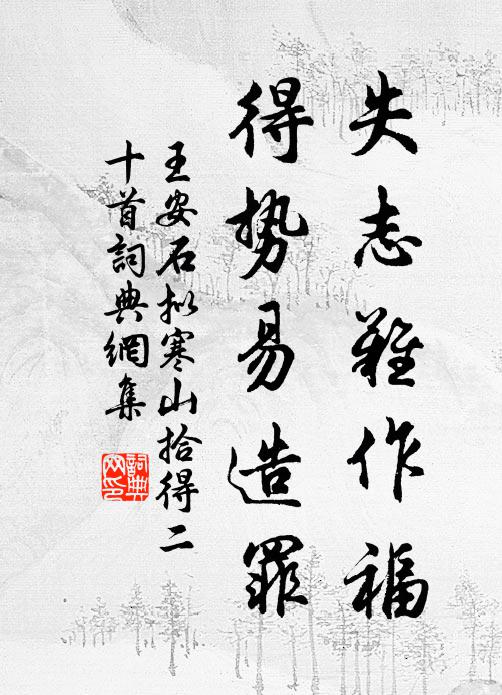 失志難作福
得势易造罪
王安石拟寒山拾得二
十首詞典網集
詞典
网印